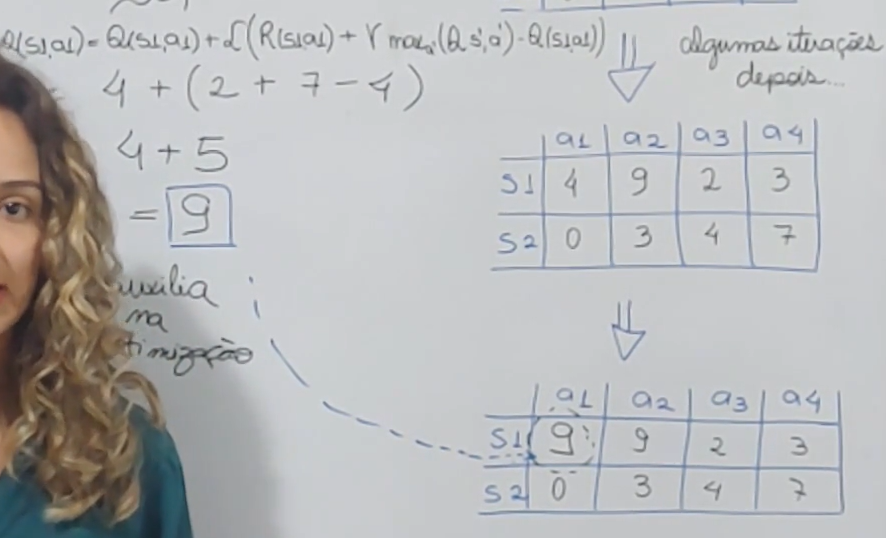 Q(s1,a1) = Q(s1,a1) + L(R(s1a1) + γ maxa'(Q s',a') - Q(s1,a1))
4 + (2 + 7 - 4)
4 + 5
= 9
na
algumas iterações
depois...
a1 a2 a3 a4
S1 4 9 2 3
S2 0 3 4 7
a1 a2 a3 a4
S1 9 9 2 3
S2 0 3 4 7